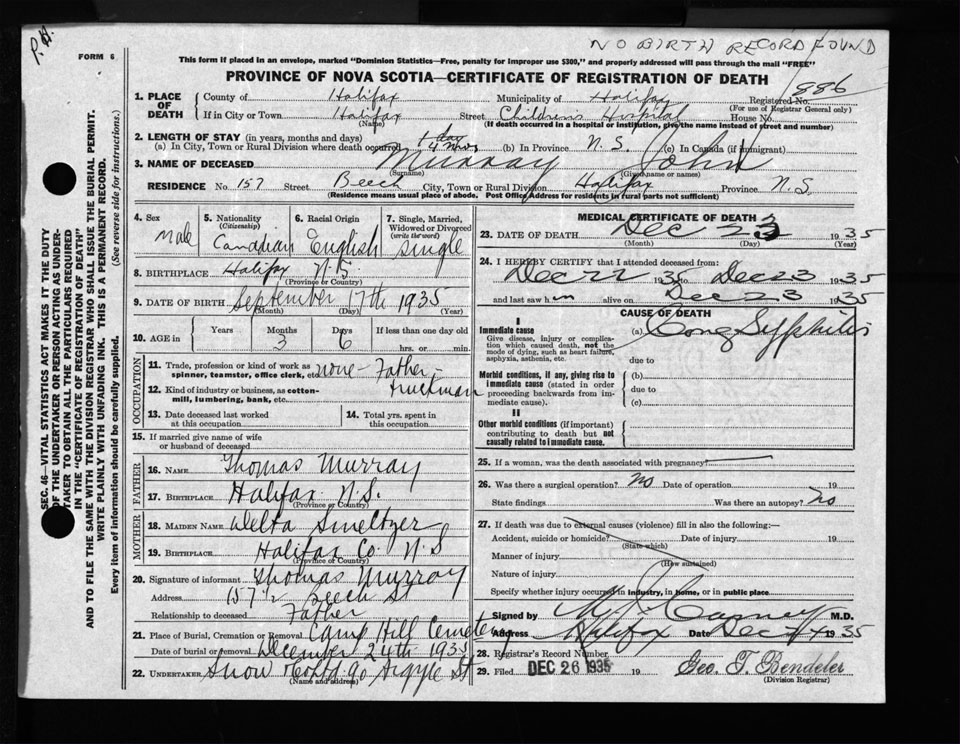 P.H.
NO BIRTH RECORD FOUND
FORM 6
This form if placed in an envelope, marked "Dominion Statistics—Free, penalty for improper use $300," and properly addressed will pass through the mail "FREE"
PROVINCE OF NOVA SCOTIA—CERTIFICATE OF REGISTRATION OF DEATH
1. PLACE OF DEATH
County of Halifax Municipality of Halifax Registered No. 886
(For use of Registrar General only)
If in City or Town Halifax Street Childrens Hospital House No.
(Name) (If death occurred in a hospital or institution, give the name instead of street and number)
2. LENGTH OF STAY (in years, months and days)
(a) In City, Town or Rural Division where death occurred 1 day (b) In Province N.S. (c) In Canada (if immigrant)
3. NAME OF DECEASED Murray John
(Surname) (Given name or names)
RESIDENCE No 157 Street Beech City, Town or Rural Division Halifax Province N.S.
(Residence means usual place of abode. Post Office Address for residents in rural parts not sufficient)
4. Sex Male
5. Nationality (Citizenship) Canadian
6. Racial Origin English
7. Single, Married, Widowed or Divorced (write the word) Single
8. BIRTHPLACE Halifax N.S.
(Province or Country)
9. DATE OF BIRTH September 17th 1935
(Month) (Day) (Year)
10. AGE in Years Months 3 Days 6 If less than one day old
hrs. or min.
OCCUPATION
11. Trade, profession or kind of work as spinner, teamster, office clerk, etc. none - Father -
12. Kind of industry or business, as cotton-mill, lumbering, bank, etc. truckman
13. Date deceased last worked at this occupation
14. Total yrs. spent in this occupation
15. If married give name of wife or husband of deceased
FATHER
16. NAME Thomas Murray
17. BIRTHPLACE Halifax N.S.
(Province or Country)
MOTHER
18. MAIDEN NAME Welta Smeltzer
19. BIRTHPLACE Halifax Co. N.S
(Province or Country)
20. Signature of informant Thomas Murray
Address 157½ Beech St
Relationship to deceased Father
21. Place of Burial, Cremation or Removal Camp Hill Cemetery
Date of burial or removal December 24th 1935
22. UNDERTAKER Snow & Co Ltd 90 Argyle St
(Name and address)
MEDICAL CERTIFICATE OF DEATH
23. DATE OF DEATH Dec 23 1935
(Month) (Day) (Year)
24. I HEREBY CERTIFY that I attended deceased from:
Dec 22 1935 Dec 23 1935
and last saw him alive on Dec 23 1935
CAUSE OF DEATH
I
Immediate cause
Give disease, injury or complication which caused death, not the mode of dying, such as heart failure, asphyxia, asthenia, etc.
(a) Cong Syphilis
due to
Morbid conditions, if any, giving rise to immediate cause (stated in order proceeding backwards from immediate cause).
(b)
due to
(c)
II
Other morbid conditions (if important) contributing to death but not causally related to immediate cause.
25. If a woman, was the death associated with pregnancy?
26. Was there a surgical operation? no Date of operation 19
State findings Was there an autopsy? no
27. If death was due to external causes (violence) fill in also the following:—
Accident, suicide or homicide? Date of injury 19
(State which)
Manner of injury
(How sustained)
Nature of injury
Specify whether injury occurred in industry, in home, or in public place
Signed by Carney M.D.
Address Halifax Date Dec 24 1935
28. Registrar's Record Number
29. Filed DEC 26 1935 19 Geo. T. Bendeler
(Division Registrar)
SEC. 46—VITAL STATISTICS ACT MAKES IT THE DUTY
OF THE UNDERTAKER OR PERSON ACTING AS UNDER-
TAKER TO OBTAIN ALL THE PARTICULARS REQUIRED
IN THE "CERTIFICATE OF REGISTRATION OF DEATH"
AND TO FILE THE SAME WITH THE DIVISION REGISTRAR WHO SHALL ISSUE THE BURIAL PERMIT.
WRITE PLAINLY WITH UNFADING INK. THIS IS A PERMANENT RECORD.
Every item of information should be carefully supplied. (See reverse side for instructions.)